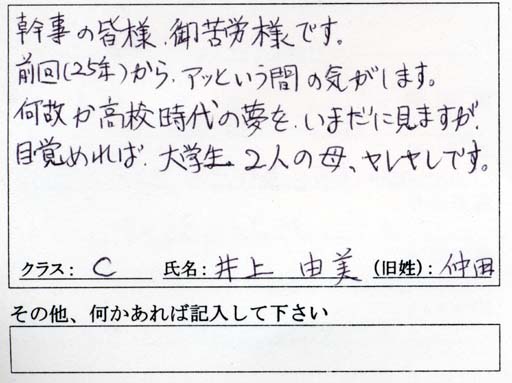 幹事の皆様、御苦労様です。
前回(25年)から、アッという間の気がします。
何故か高校時代の夢を、いまだに見ますが、
目覚めれば、大学生2人の母、ヤレヤレです。
クラス: C 氏名: 井上 由美 (旧姓): 仲田
その他、何かあれば記入して下さい